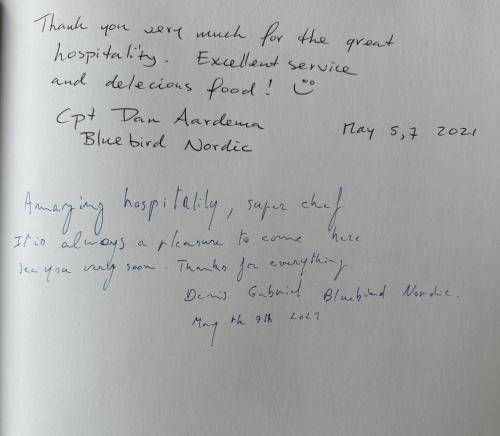 Thank you very much for the great
hospitality. Excellent service
and delecious food!
Cpt Dan Aardema
May 5,7 2021
Bluebird Nordic
Amazing hospitality, super chef
It is always a pleasure to come here
See you very soon. Thanks for everything
Denis Gabriel Bluebird Nordic.
May the 9th 2021